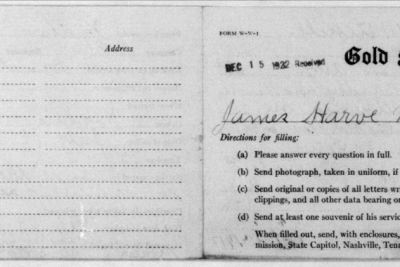 Address
FORM W-W-1
DEC 15 1922 Received
Gold
James Harve
Directions for filling:
(a) Please answer every question in full.
(b) Send photograph, taken in uniform, if
(c) Send original or copies of all letters
clippings, and all other data bearing
(d) Send at least one souvenir of his
When filled out, send, with enclosures,
mission, State Capitol, Nashville,